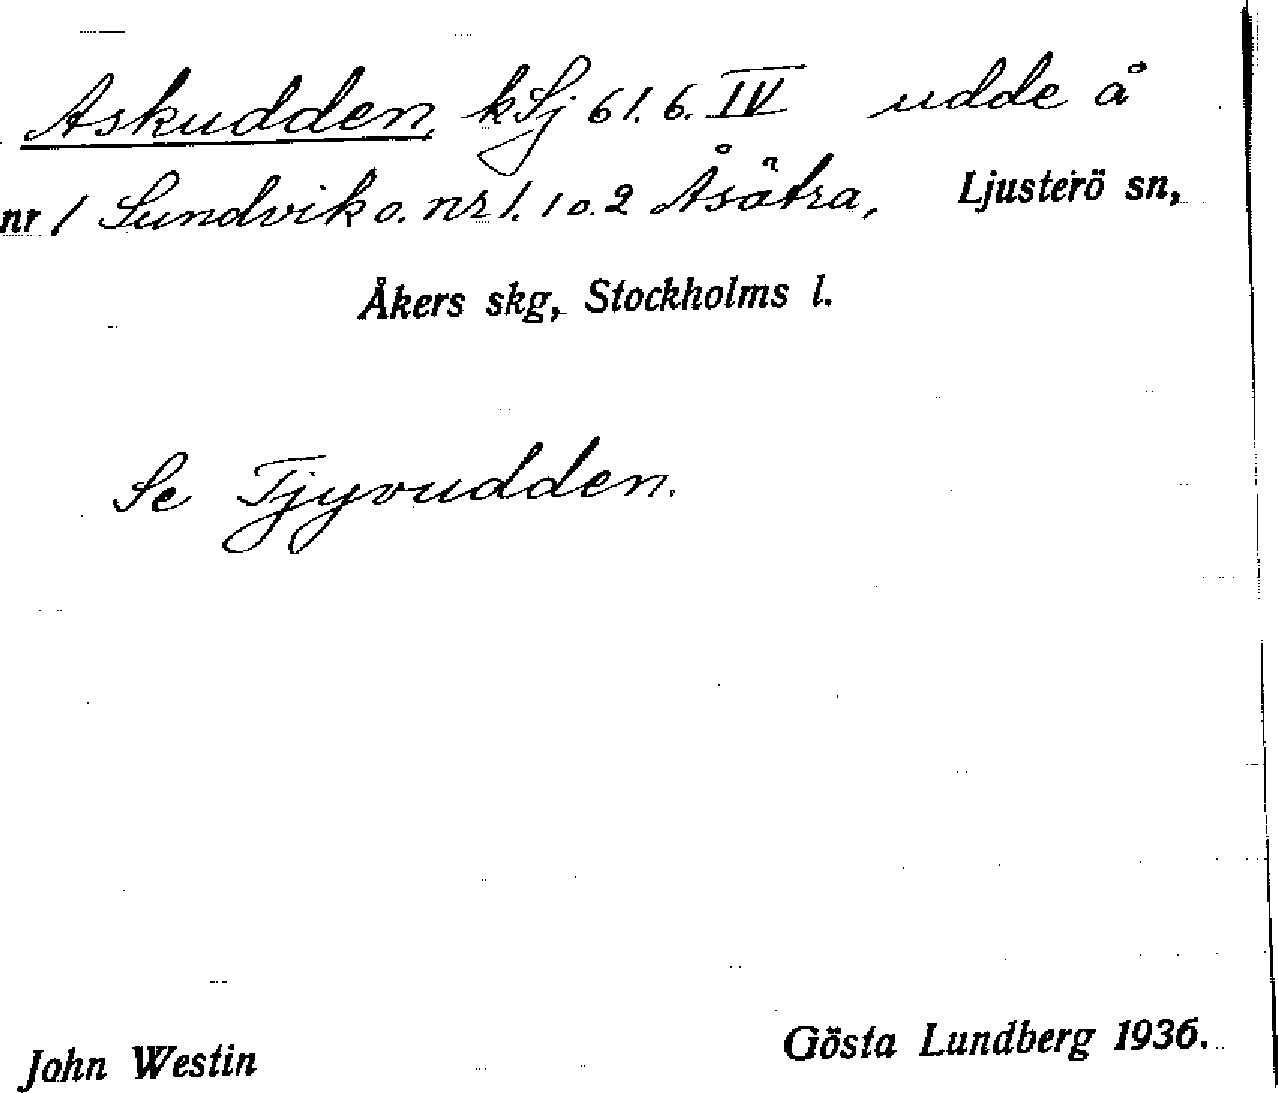 Askudden kSj 61.6. IV udde å
nr 1 Sundvik o. nr 1. 1 o. 2 Åsätra, Ljusterö sn,
Åkers skg, Stockholms l.
Se Tjyvudden.
John Westin Gösta Lundberg 1936.